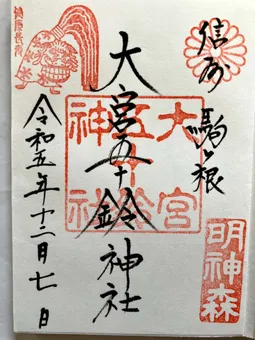 信州 駒ヶ根
大宮五十鈴神社
令和五年十二月七日
大宮
五十鈴
神社
明神森